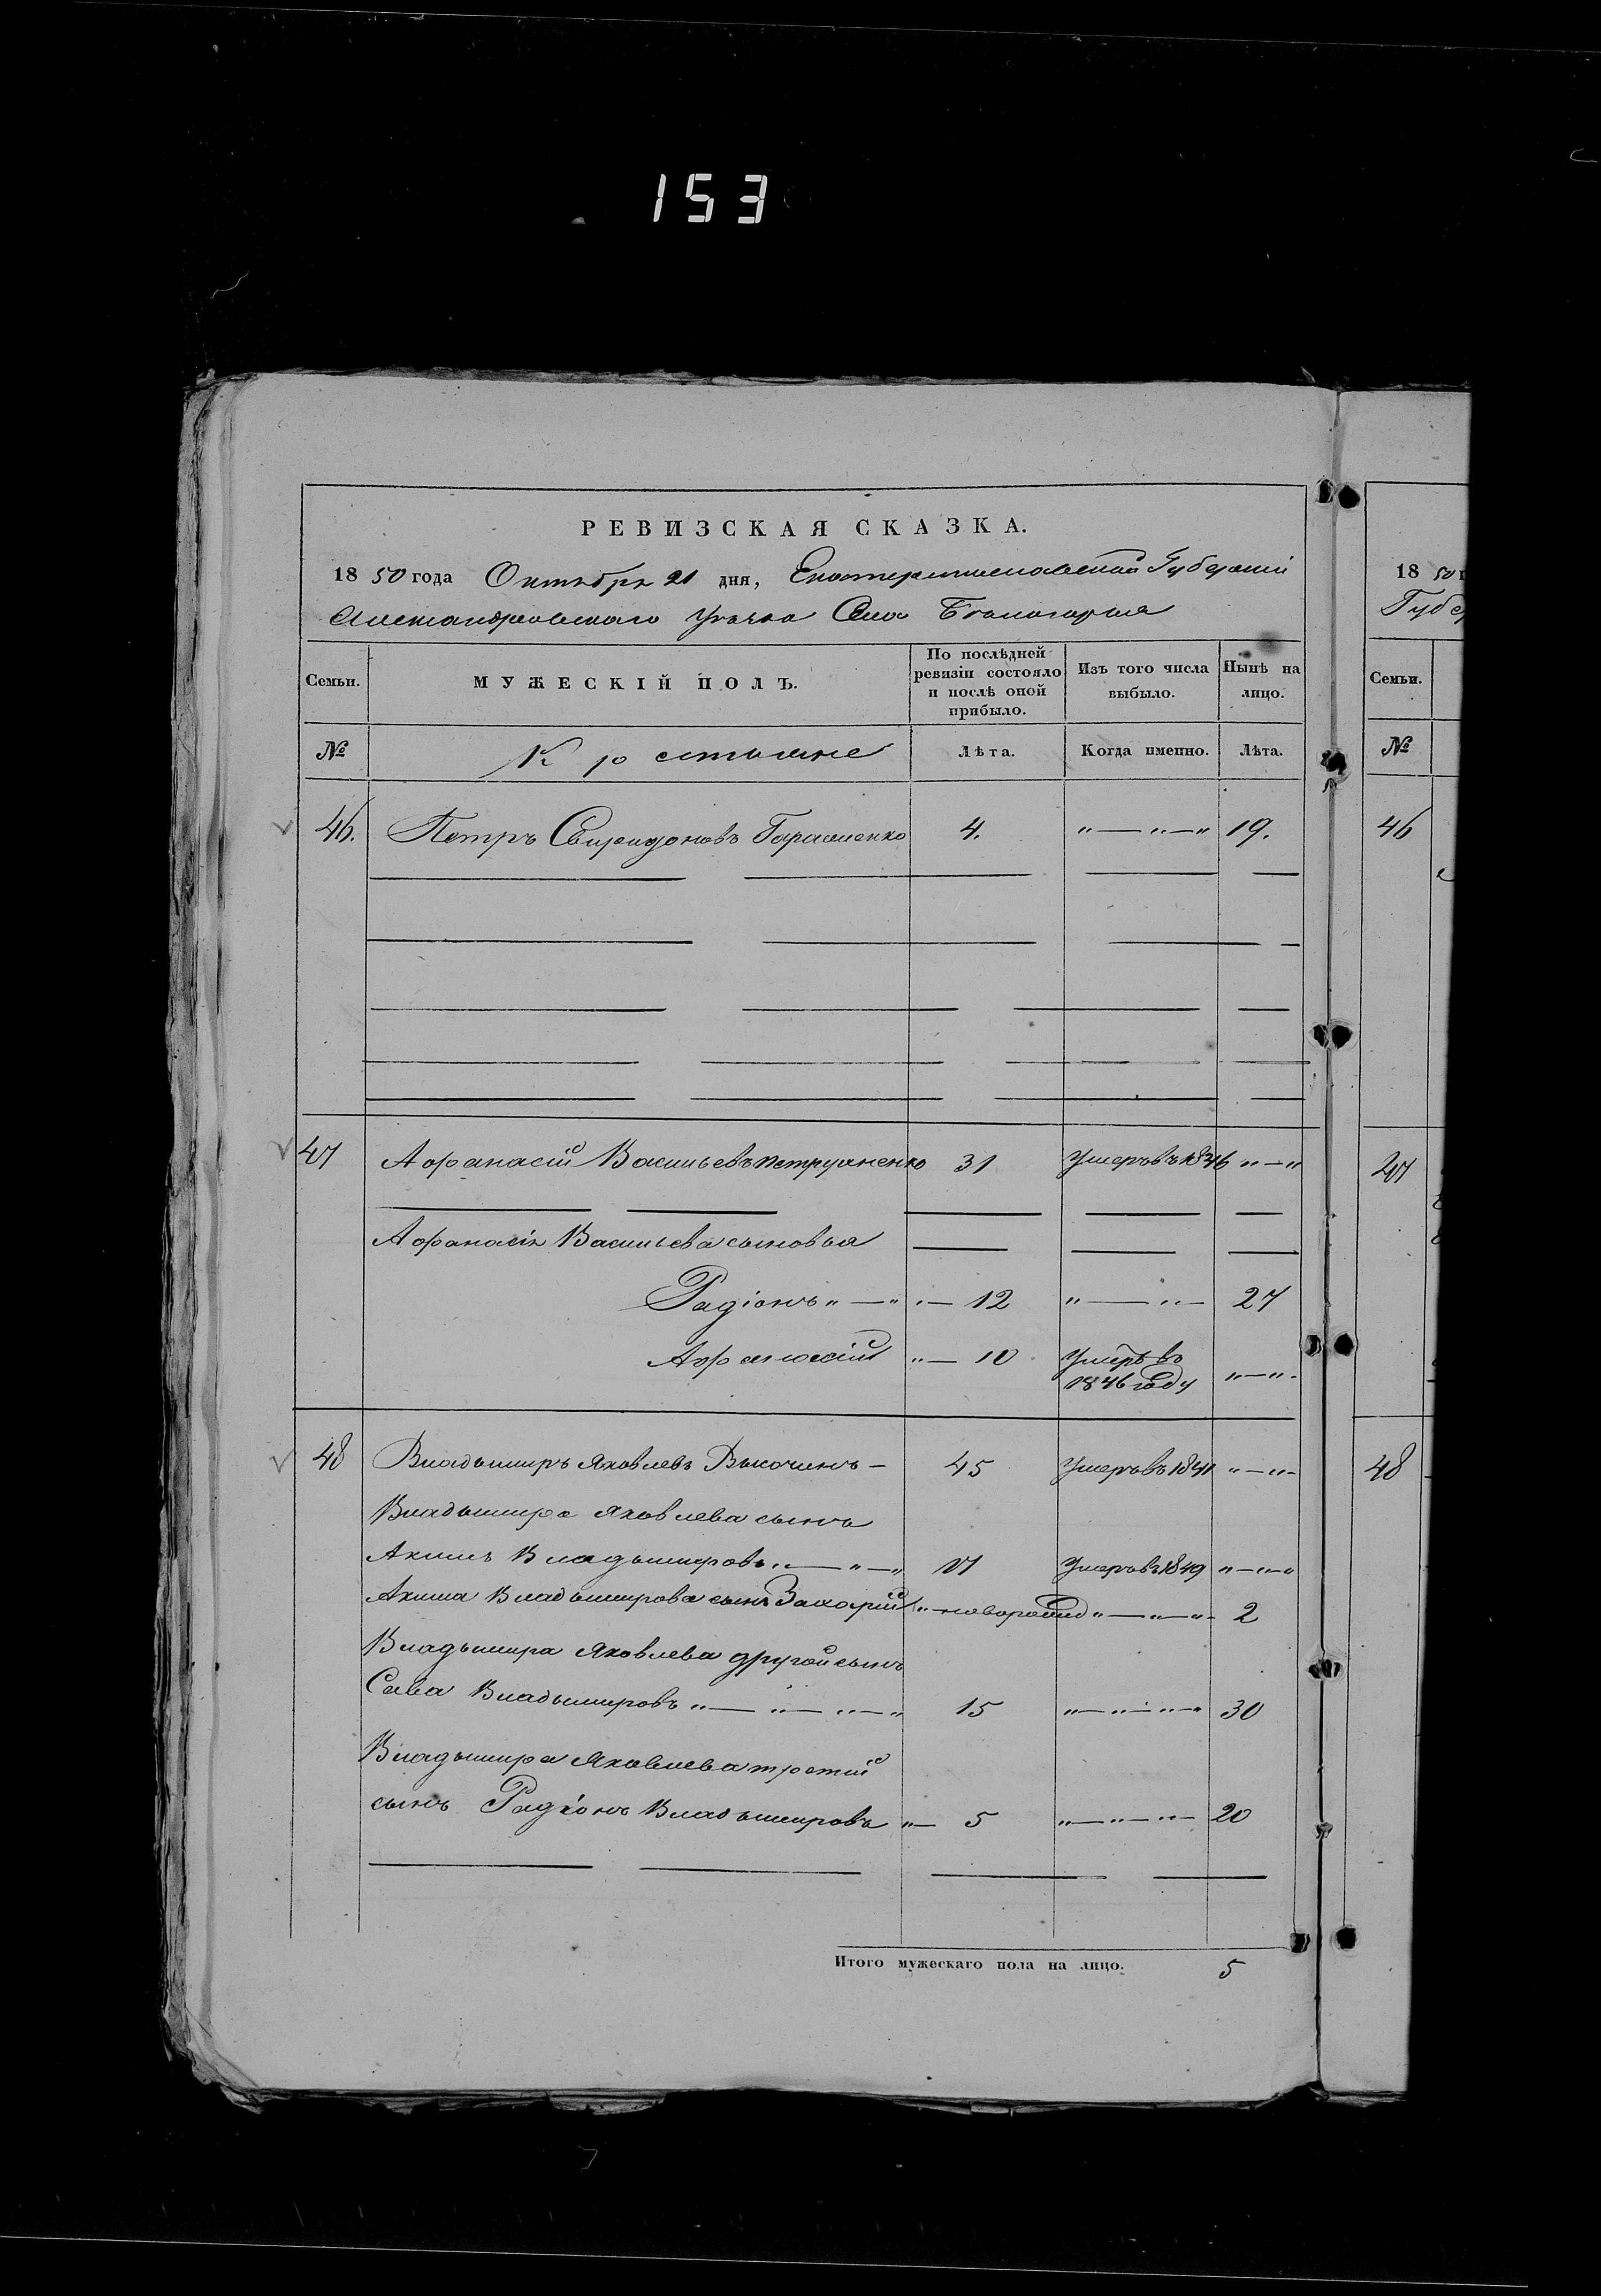 153
РЕВИЗСКАЯ СКАЗКА.
18 50 года Октября 21 дня, Екатеринославской Губерніи
Александровскаго Уезда Села Бѣлогорья
Семьи. МУЖЕСКІЙ ПОЛЪ. По послѣдней ревизіи состояло и послѣ оной прибыло. Изъ того числа выбыло. Нынѣ на лицо.
№ Крестьяне Лѣта. Когда именно. Лѣта.
46. Петръ Свиридоновъ Гарашенко 4. "—"—" 19.
47 Афанасій Васильевъ Петрушенко 31 Умеръ въ 1846 "—"
Афанасія Васильева сыновья
Радіонъ "—" "— 12 "—"— 27
Афанасій "— 10 Умеръ въ
1846 году "—"
48 Владымиръ Яковлевъ Высочинъ — 45 Умеръ въ 1841 "—"—
Владымира Яковлева сынъ
Акимъ Владымировъ "—"—" 21 Умеръ въ 1849 "—"—"
Акима Владымирова сынъ Захарій "— новорожд "—"—"— 2
Владымира Яковлева другой сынъ
Сава Владымировъ "—"—"—" 15 "—"—"—" 30
Владымира Яковлева третій
сынъ Радіонъ Владымировъ "— 5 "—"—"— 20
Итого мужескаго пола на лицо. 5
18 50 г
Губер
Семьи.
№
46
47
48